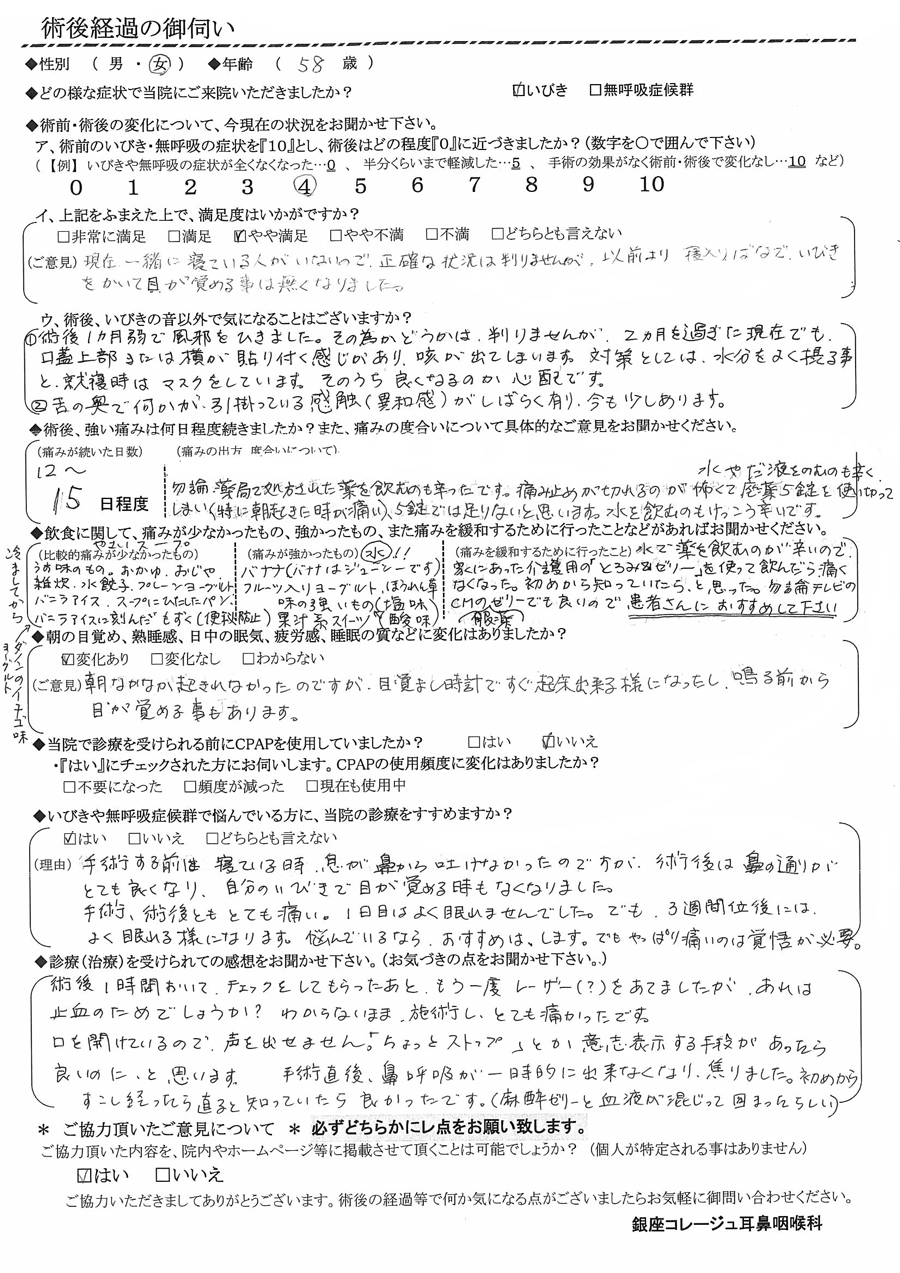 術後経過の御伺い
◆性別 ( 男 ・ 女 ) ◆年齢 ( 58 歳 )
◆どの様な症状で当院にご来院いただきましたか? ☑いびき □無呼吸症候群
◆術前・術後の変化について、今現在の状況をお聞かせ下さい。
ア、術前のいびき・無呼吸の症状を『10』とし、術後はどの程度『0』に近づきましたか?(数字を○で囲んで下さい)
(【例】いびきや無呼吸の症状が全くなくなった…0 、 半分くらいまで軽減した…5 、 手術の効果がなく術前・術後で変化なし…10 など)
0 1 2 3 ④ 5 6 7 8 9 10
イ、上記をふまえた上で、満足度はいかがですか?
□非常に満足 □満足 ☑やや満足 □やや不満 □不満 □どちらとも言えない
(ご意見) 現在、一緒に寝ている人がいないので、正確な状況は判りませんが、以前より 寝入りばなで、いびき
をかいて目が覚める事は無くなりました。
ウ、術後、いびきの音以外で気になることはございますか?
①術後1カ月弱で風邪をひきました。その為かどうかは、判りませんが、2カ月を過ぎた現在でも、
口蓋上部または横が貼り付く感じがあり、咳が出てしまいます。対策としては、水分をよく摂る事
と、就寝時はマスクをしています。そのうち良くなるのか心配です。
②舌の奥で何かが、引掛っている感触(異和感)がしばらく有り、今も少しあります。
◆術後、強い痛みは何日程度続きましたか?また、痛みの度合いについて具体的なご意見をお聞かせください。
(痛みが続いた日数) (痛みの出方、度合いについて)
12〜
15 日程度
水やだ液をのむのも辛く、
勿論、薬局で処方された薬を飲むのも辛ったです。痛み止めが切れるのが怖くて座薬5錠を使い切って
しまい(特に朝起きた時が痛い)、5錠では足りないと思います。水を飲むのもけっこう辛いです。
◆飲食に関して、痛みが少なかったもの、強かったもの、また痛みを緩和するために行ったことなどがあればお聞かせください。
(比較的痛みが少なかったもの)
やさいスープ
うす味のもの。おかゆ、おじや
雑炊、水餃子、プレーンヨーグルト
バニラアイス、スープにひたしたパン
バニラアイスに刻んだもずく(便秘防止)
冷ましてから
ダノンのイチゴ味
ヨーグルト
(痛みが強かったもの) 水!!
バナナ(バナナはジューシーです)
フルーツ入りヨーグルト、ほうれん草
味の強いもの(塩味)
果汁系スイーツ(酸味)
(痛みを緩和するために行ったこと) 水で薬を飲むのが辛いので、
家にあった介護用の「とろみゼリー」を使って飲んだら痛く
なくなった。初めから知っていたら、と思った。勿論テレビの
CMのゼリーでも良いので患者さんにおすすめして下さい
(服薬)
◆朝の目覚め、熟睡感、日中の眠気、疲労感、睡眠の質などに変化はありましたか?
☑変化あり □変化なし □わからない
(ご意見) 朝なかなか起きれなかったのですが、目覚まし時計ですぐ起床出来る様になったし、鳴る前から
目が覚める事もあります。
◆当院で診療を受けられる前にCPAPを使用していましたか? □はい ☑いいえ
・『はい』にチェックされた方にお伺いします。CPAPの使用頻度に変化はありましたか?
□不要になった □頻度が減った □現在も使用中
◆いびきや無呼吸症候群で悩んでいる方に、当院の診療をすすめますか?
☑はい □いいえ □どちらとも言えない
(理由) 手術する前は寝ている時、息が鼻から吐けなかったのですが、術後は鼻の通りが
とても良くなり、自分のいびきで目が覚める時もなくなりました。
手術、術後ともとても痛い。1日目はよく眠れませんでした。でも、3週間位後には、
よく眠れる様になります。悩んでいるなら、おすすめは、します。でもやっぱり痛いのは覚悟が必要。
◆診療(治療)を受けられての感想をお聞かせ下さい。(お気づきの点をお聞かせ下さい。)
術後1時間おいて、チェックをしてもらったあと、もう一度レーザー(?)をあてましたが、あれは
止血のためでしょうか? わからないまま、施術し、とても痛かったです。
口を開けているので、声を出せません。「ちょっとストップ」とか意志表示する手段があったら
良いのに、と思います。 手術直後、鼻呼吸が一時的に出来なくなり、焦りました。初めから
すこし経ったら直ると知っていたら良かったです。(麻酔ゼリーと血液が混じって固まったらしい)
＊ ご協力頂いたご意見について ＊ 必ずどちらかにレ点をお願い致します。
ご協力頂いた内容を、院内やホームページ等に掲載させて頂くことは可能でしょうか? (個人が特定される事はありません)
☑はい □いいえ
ご協力いただきましてありがとうございます。術後の経過等で何か気になる点がございましたらお気軽に御問い合わせください。
銀座コレージュ耳鼻咽喉科